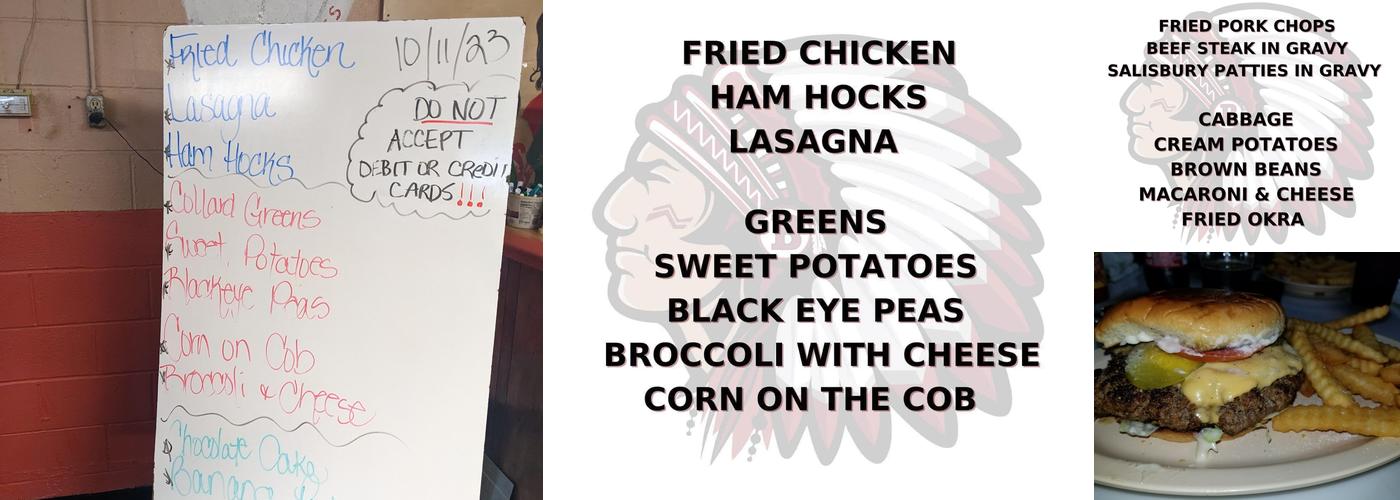 Fried Chicken
10/11/23
Lasagna
Ham Hocks
DO NOT
ACCEPT
DEBIT OR CREDIT
CARDS!!!
Collard Greens
Sweet Potatoes
Blackeye Peas
Corn on Cob
Broccoli & Cheese
Chocolate Cake
Banana
FRIED CHICKEN
HAM HOCKS
LASAGNA
GREENS
SWEET POTATOES
BLACK EYE PEAS
BROCCOLI WITH CHEESE
CORN ON THE COB
FRIED PORK CHOPS
BEEF STEAK IN GRAVY
SALISBURY PATTIES IN GRAVY
CABBAGE
CREAM POTATOES
BROWN BEANS
MACARONI & CHEESE
FRIED OKRA